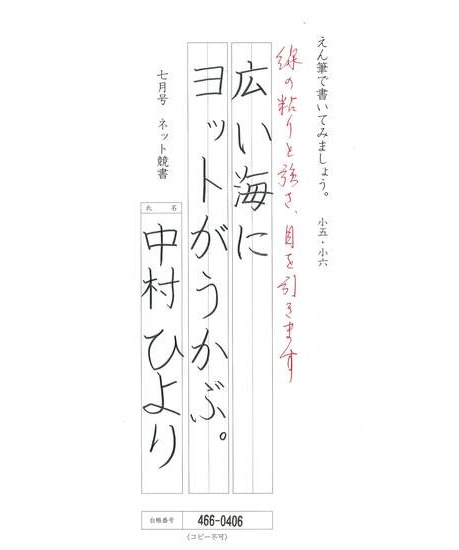 えん筆で書いてみましょう。 小五・小六
線の粘りと強さ、目を引きます
広い海に
ヨットがうかぶ。
七月号 ネット競書
氏名
中村ひより
台帳番号 466-0406
〈コピー不可〉